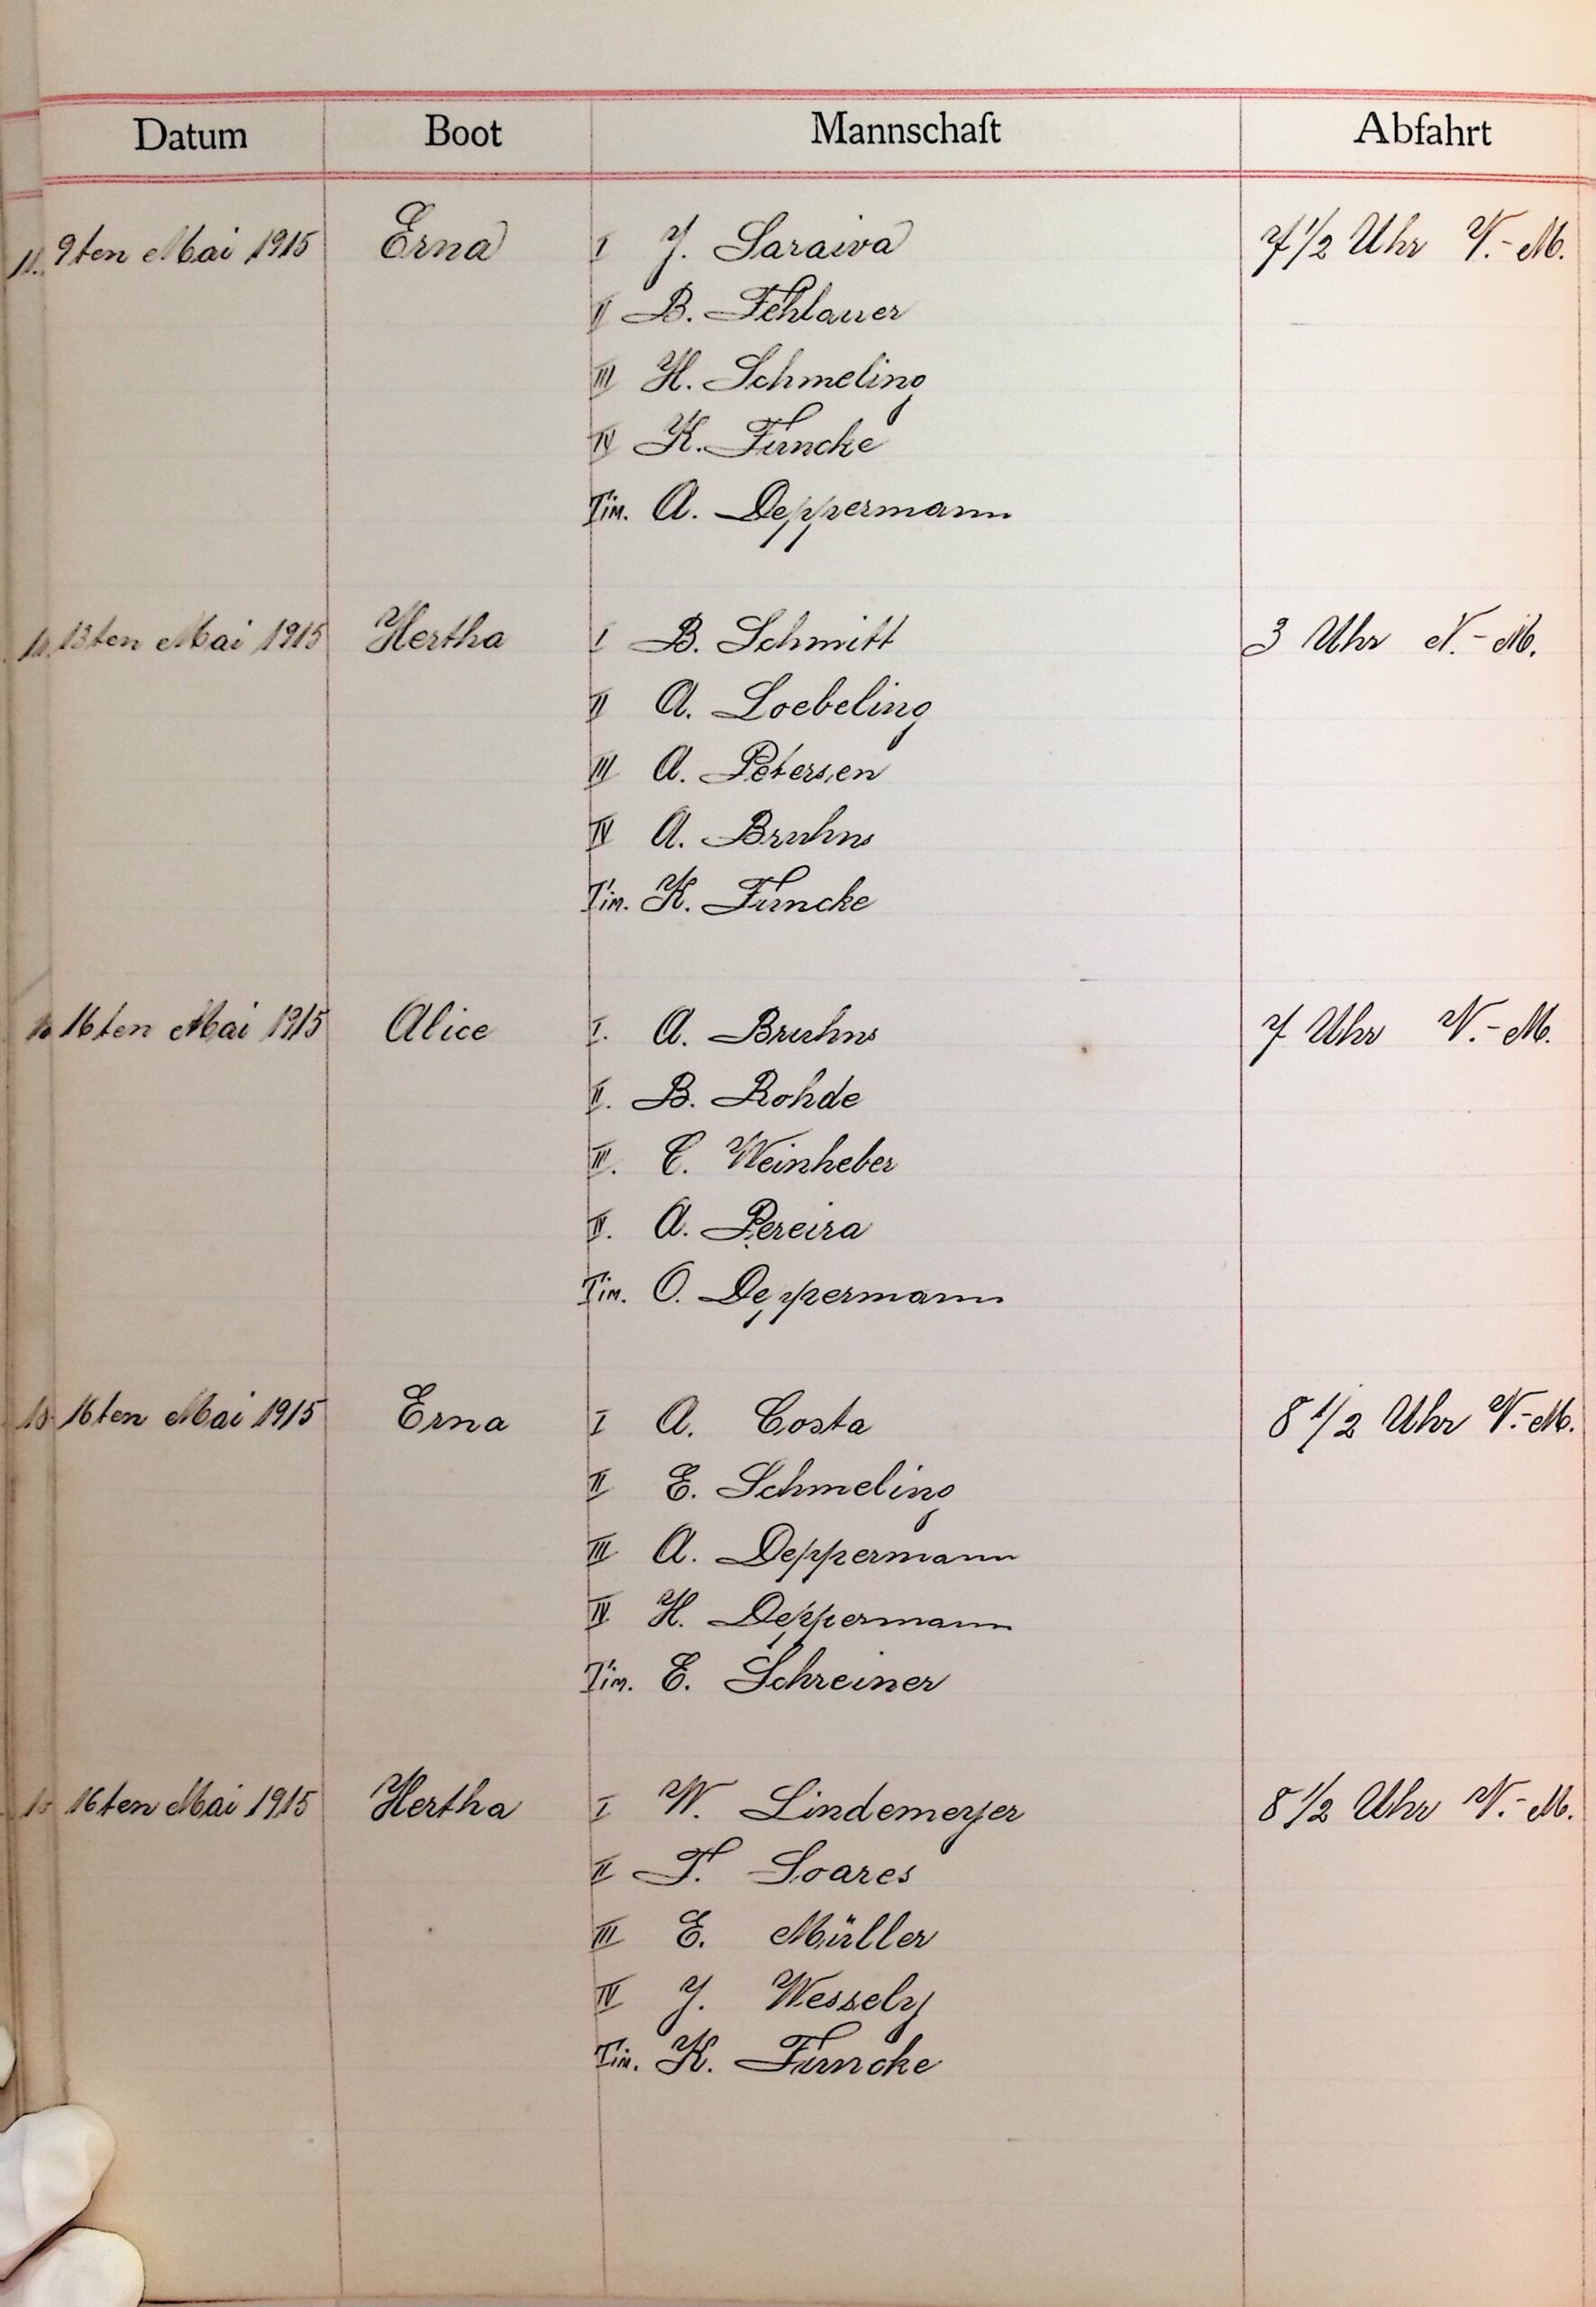 Datum Boot Mannschaft Abfahrt
9ten Mai 1915 Erna I J. Saraiva 7 1/2 Uhr V.-M.
II B. Fehlauer
III H. Schmeling
IV K. Funcke
Tim. A. Deppermann
13ten Mai 1915 Hertha I B. Schmitt 3 Uhr N.-M.
II A. Loebeling
III A. Petersen
IV A. Bruhns
Tim. K. Funcke
16ten Mai 1915 Alice I. A. Bruhns 7 Uhr V.-M.
II. B. Rohde
III. C. Weinheber
IV. A. Pereira
Tim. O. Deppermann
16ten Mai 1915 Erna I A. Costa 8 1/2 Uhr V.-M.
II E. Schmeling
III A. Deppermann
IV H. Deppermann
Tim. E. Schreiner
16ten Mai 1915 Hertha I W. Lindemeyer 8 1/2 Uhr V.-M.
II F. Soares
III E. Müller
IV J. Wessely
Tim. K. Funcke